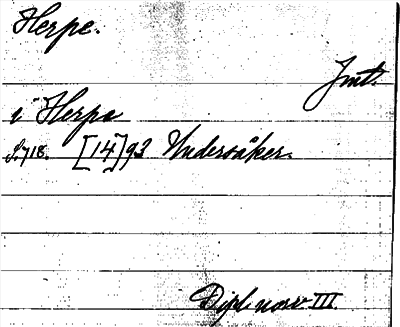 Herpe.
Jmt.
i Herpe
S. 718. [14]93 Undersåker.
Dipl. norv III.